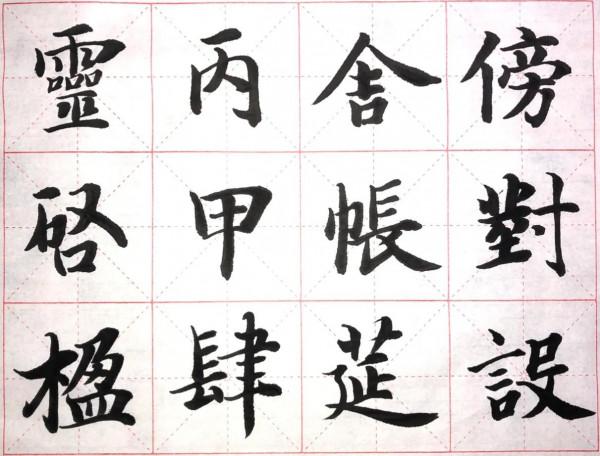 靈丙舍傍
啓甲帳對
楹肆筵設